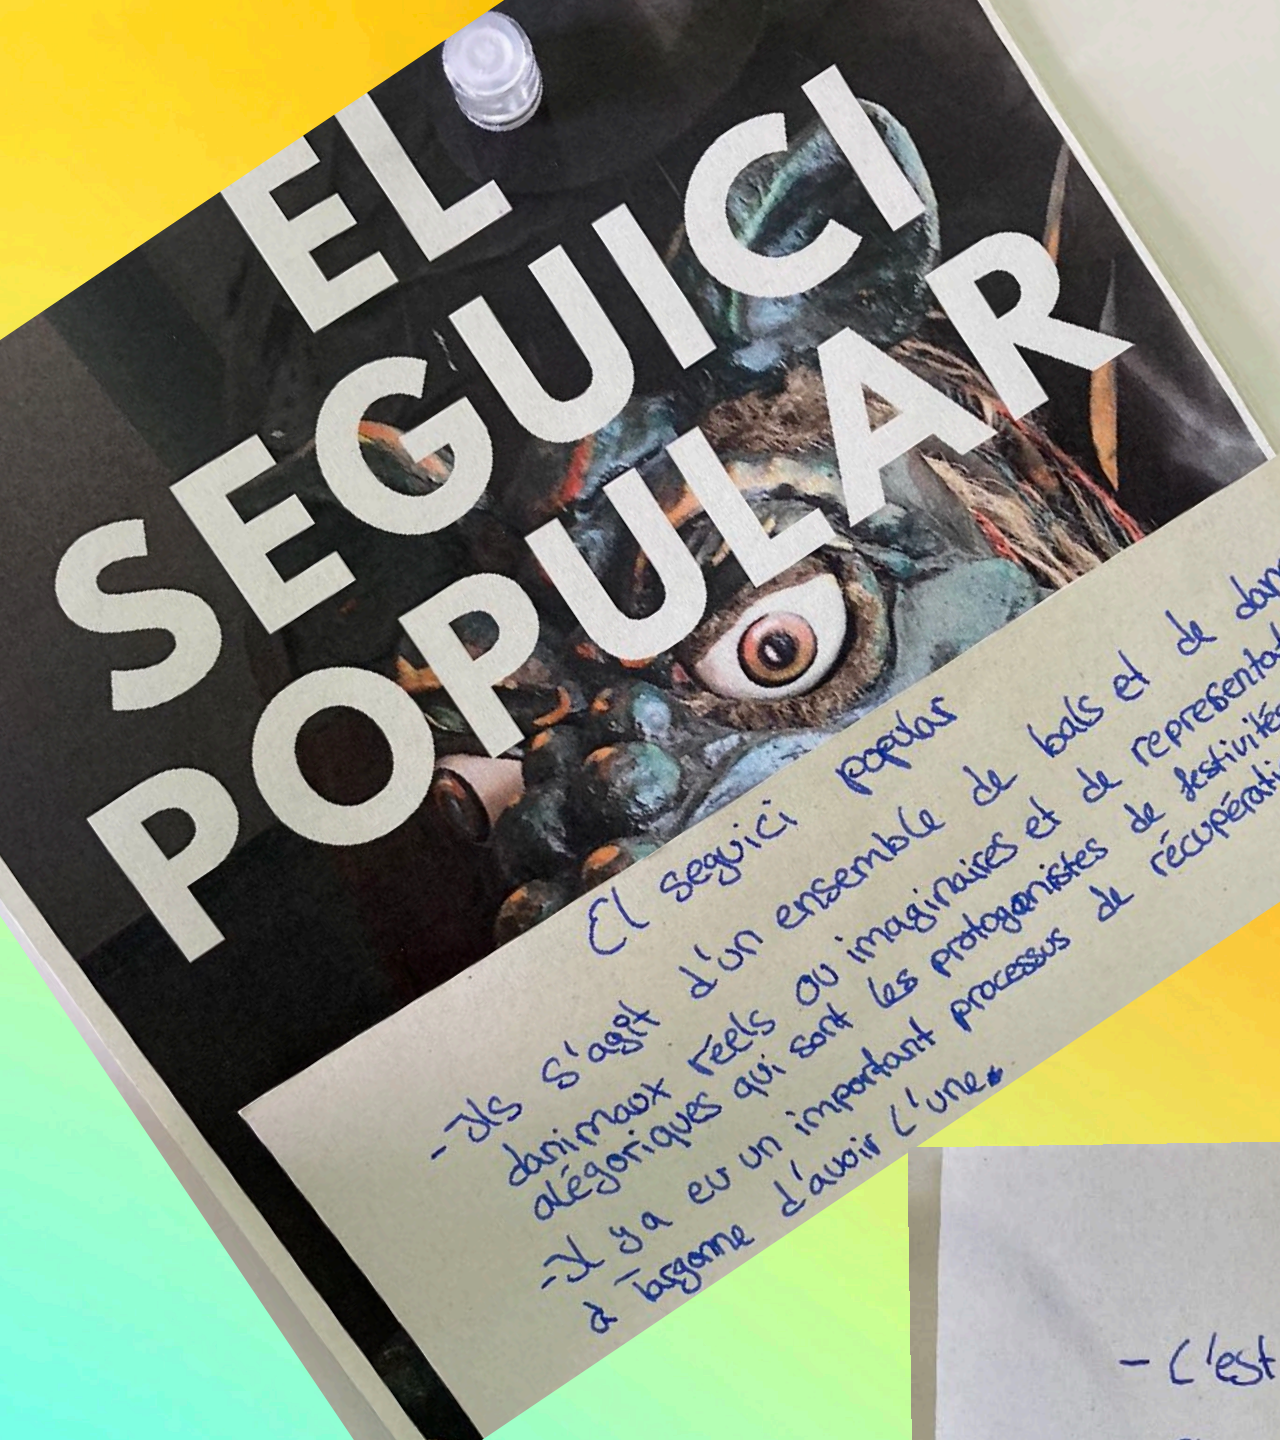 EL
SEGUICI
POPULAR
El seguici popular
-Ils s'agit d'un ensemble de bals et de
danimaux réels ou imaginaires et de
alégoriques qui sont les protagonistes de
-Il y a eu un important processus de
à Targone d'avoir l'une.
- C'est